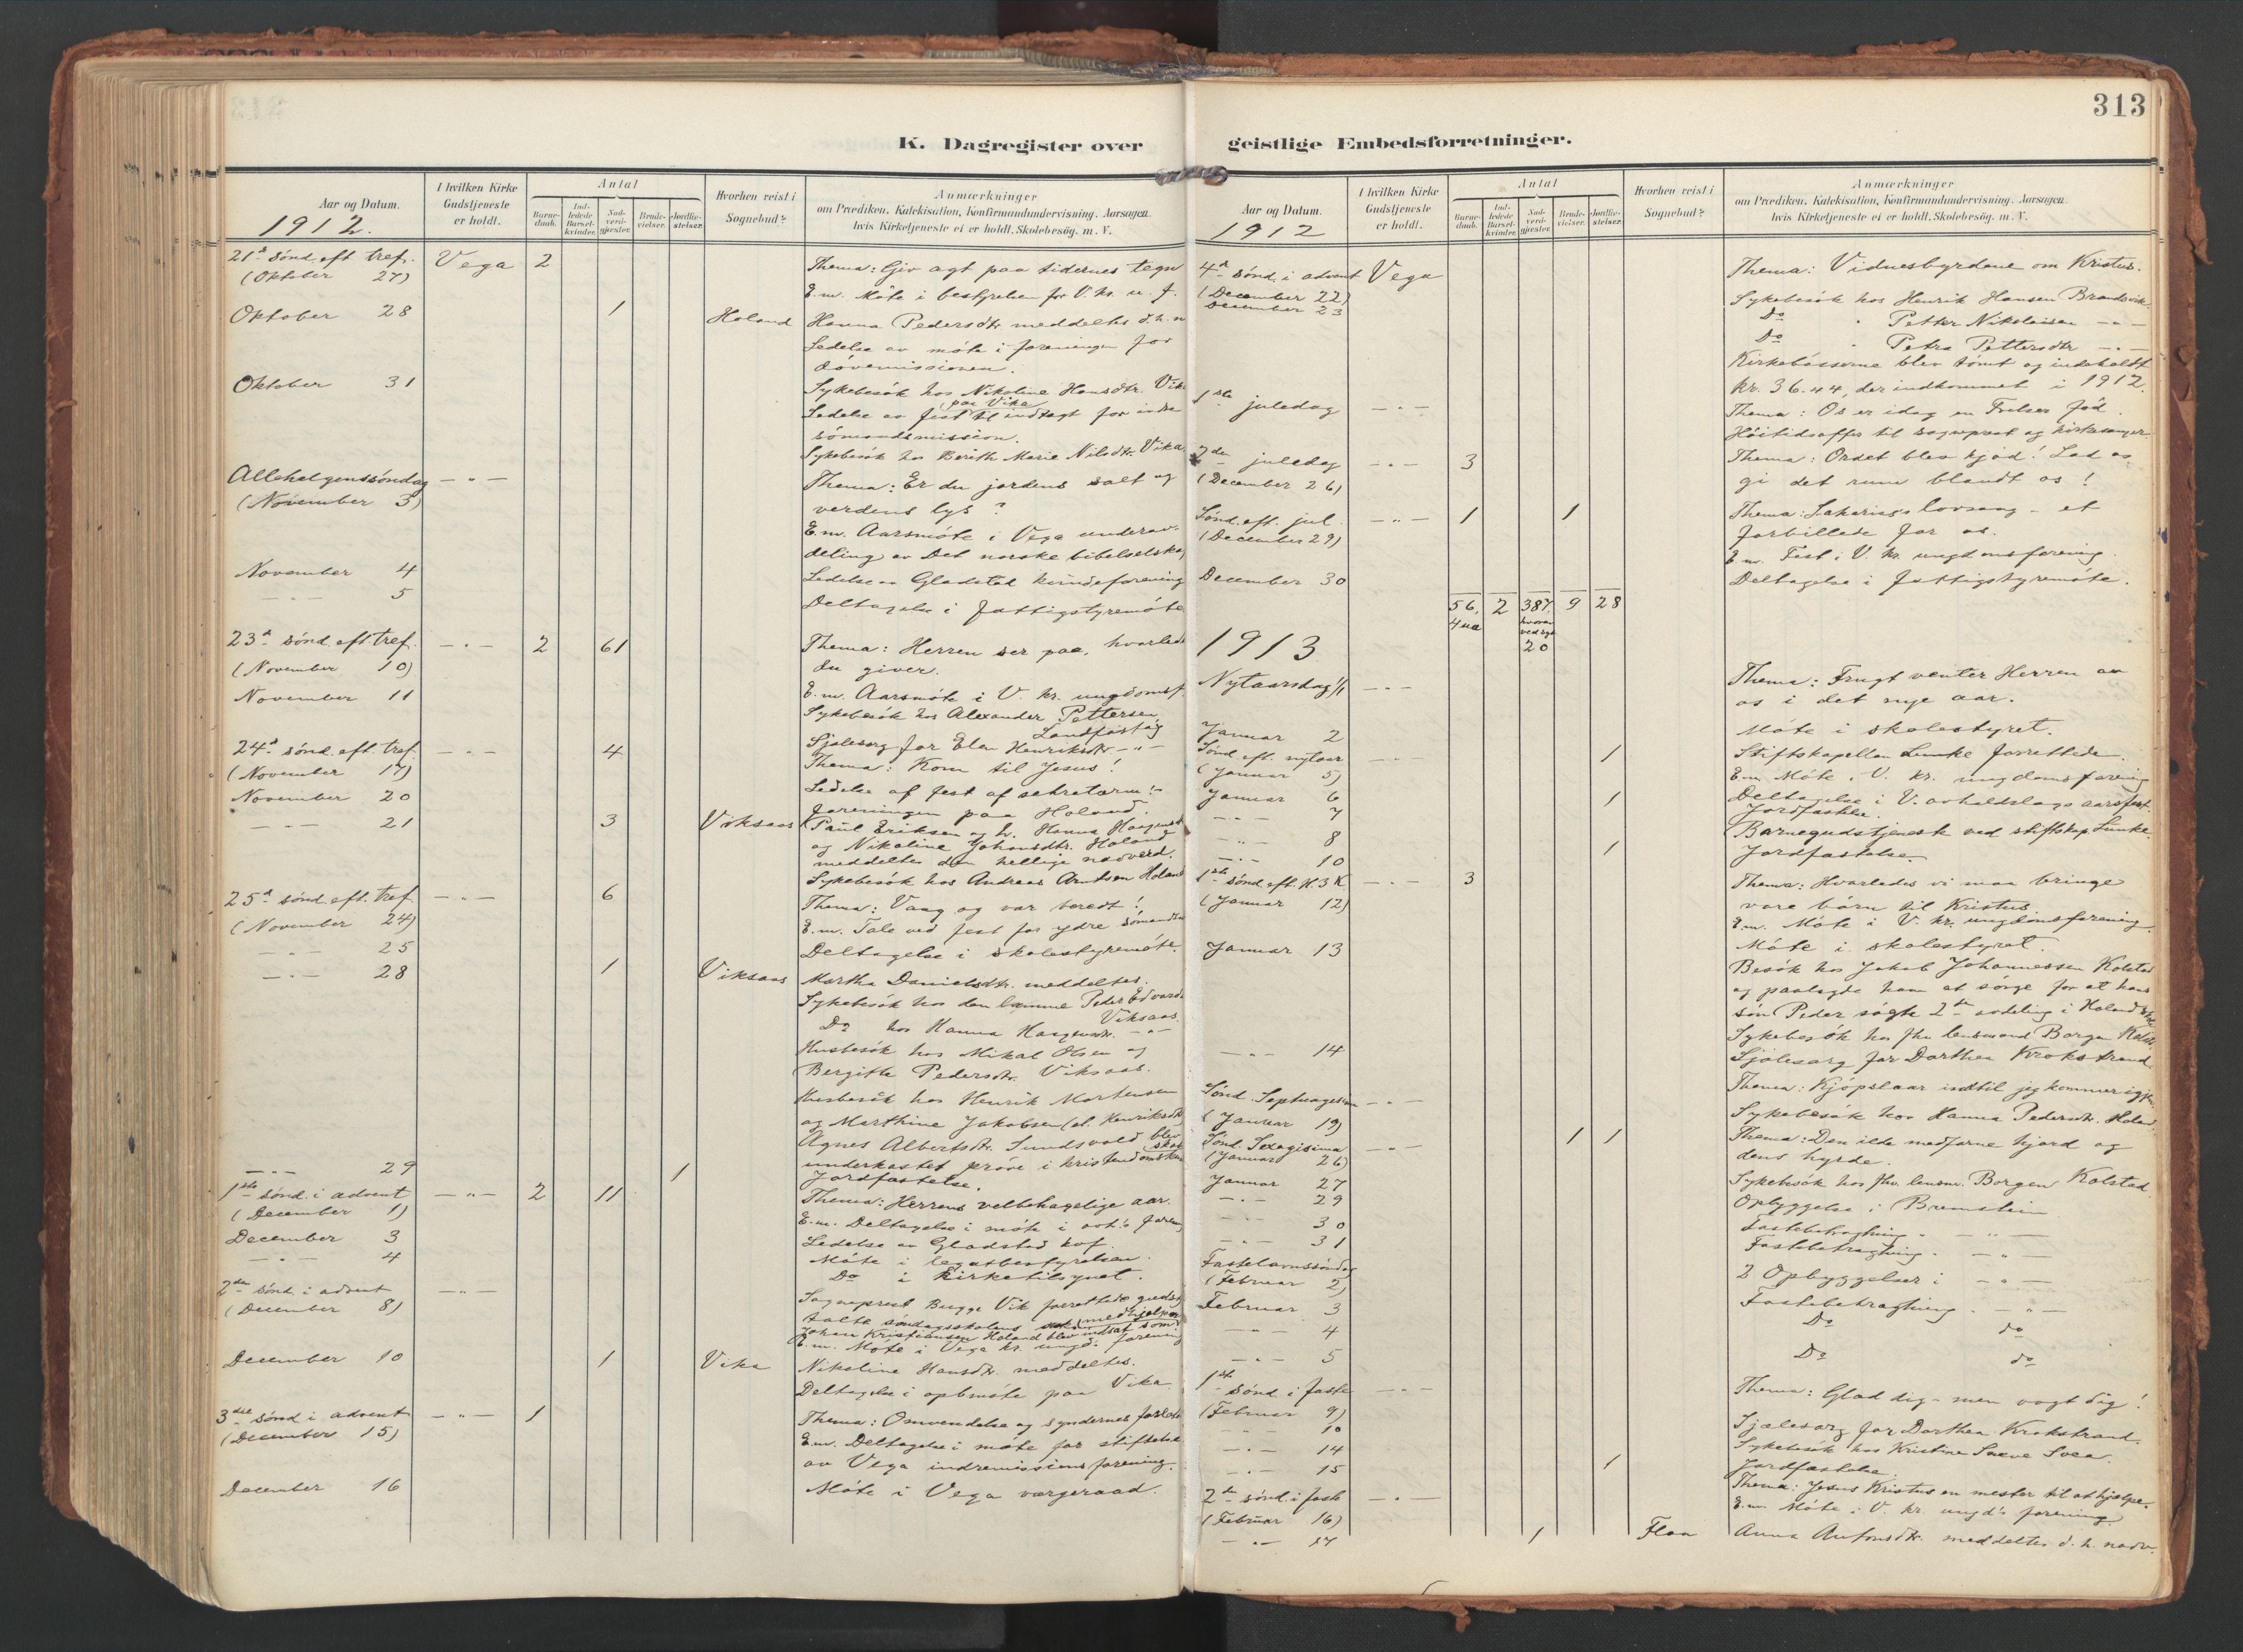 313
K. Dagregister over geistlige Embedsforretninger.
Aar og Datum.
I hvilken Kirke Gudstjeneste er holdt.
Antal
Barnedaab.
Indledede Barselkvinder.
Nadverdgjester.
Brudevielser.
Jordfæstelser.
Hvorhen reist i Sognebud?
Anmærkninger
om Prædiken, Katekisation, Konfirmandundervisning. Aarsagen
hvis Kirketjeneste ei er holdt. Skolebesøg. m. V.
1912.
21d sønd. eft. tref. Vega 2 Thema: Giv agt paa tidernes tegn
(Oktober 27) E.m. Møte i bestyrelsen for V. kr. u. f.
Oktober 28 1 Holand Hanna Pedersdtr. meddeltes d. h. n
Ledelse av møte i foreningen for
døvemissionen.
Oktober 31 Sykebesøk hos Nikoline Hansdtr. Vika
Ledelse av fest paa Vika til indtægt for indre
sømandsmission.
Sykebesøk hos Berith Marie Nilsdtr. Vika
Allehelgenssøndag - " - Thema: Er du jordens salt og
(November 3) verdens lys?
E.m. Aarsmøte i Vega underav-
deling av Det norske bibelselskap
November 4 Ledelse av Gladstad kvindeforening
- " - 5 Deltagelse i fattigstyremøte
23d sønd. eft. tref. - " - 2 61 Thema: Herren ser paa, hvorledes
(November 10) du giver.
November 11 E.m. Aarsmøte i V. kr. ungdomsf.
Sykebesøk hos Alexander Pettersen
24d sønd. eft. tref. - " - 4 Sjælesorg for Elen Henriksdtr. - " -
(November 17) Thema: Kom til Jesus!
November 20 Ledelse af fest af
foreningen paa Holand.
- " - 21 3 Viksaas Paul Eriksen og h. Hanna
og Nikoline Johansdtr. Holand
meddeltes den hellige nadverd.
Sykebesøk hos Andreas Arntsen Holand
25d sønd. eft. tref. - " - 6 Thema: Vaag og vær beredt!
(November 24) E.m. Tale ved fest for ydre sømandsm
- " - 25 Deltagelse i skolestyremøte.
- " - 28 1 Viksaas Martha Danielsdtr. meddeltes.
Sykebesøk hos den lamme Peder Edvards
Viksaas.
Do hos Hanna - " -
Husbesøk hos Mikal Olsen og
Bergitte Pedersdtr. Viksaas.
Husbesøk hos Henrik Mortensen
og Marthine Jakobsen
Agnes Albertsdtr. Sundsvold blev
underkastet prøve i kristendomskun
- " - 29 1 Jordfæstelse.
1ste sønd. i advent - " - 2 11 Thema: Herrens velbehagelige aar.
(December 1) E.m. Deltagelse i møte i
December 3 Ledelse av Gladstad kvf.
- " - 4 Møte i legatbestyrelsen.
Do i kirketilsynet.
2den sønd. i advent - " - Sogneprest Bugge Vik forrettede gudstj
(December 8) talte søndagsskolens
Johan Kristiansen Holand blev indsat som
E.m. Møte i Vega kr. ungd. forening
December 10 1 Vika Nikoline Hansdtr. meddeltes.
Deltagelse i opbmøte paa Vika.
3die sønd. i advent - " - 1 Thema: Omvendelse og syndernes forlat
(December 15) E.m. Deltagelse i møte for stiftelse
av Vega indremissionsforening.
December 16 Møte i Vega vergeraad.
Aar og Datum.
I hvilken Kirke Gudstjeneste er holdt.
Antal
Barnedaab.
Indledede Barselkvinder.
Nadverdgjester.
Brudevielser.
Jordfæstelser.
Hvorhen reist i Sognebud?
Anmærkninger
om Prædiken, Katekisation, Konfirmandundervisning. Aarsagen
hvis Kirketjeneste ei er holdt. Skolebesøg. m. V.
1912
4d sønd. i advent Vega Thema: Vidnesbyrdene om Kristus.
(December 22)
December 23 Sykebesøk hos Henrik Hansen Brandsvik
Do " Petter Nikolaisen - " -
Do " Petra Pettersdtr. - " -
Kirkebøsserne blev tømt og indeholdt
kr. 36.44, der indkommet i 1912.
1ste juledag - " - Thema: Os er idag en Frelser fød.
Høitidsoffer til sogneprest og kirkesanger
2den juledag - " - 3 Thema: Ordet blev kjød! Lad os
(December 26) gi det rum blandt os!
Sønd. eft. jul. - " - 1 1 Thema: Zakarias lovsang - et
(December 29) forbillede for os.
E.m. Fest i V. kr. ungdomsforening.
December 30 Deltagelse i fattigstyremøte.
56, 2 387, 9 28
4 ua hvorav ved syk 20
1913
Nytaarsdag 1/1 - " - Thema: Frugt venter Herren av
os i det nye aar.
Januar 2 Møte i skolestyret.
Sønd. eft. nytaar - " - 1 Stiftskapellan Lunke forrettede.
(Januar 5) E.m. Møte i V. kr. ungdomsforening
Januar 6 1 Deltagelse i V. avholdslags aarsfest.
Jordfæstelse.
- " - 7 Barnegudstjeneste ved stiftskap. Lunke.
- " - 8 1 Jordfæstelse.
- " - 10
1ste sønd. eft. H.3K. - " - 3 Thema: Hvorledes vi maa bringe
(Januar 12) vore børn til Kristus.
E.m. Møte i V. kr. ungdomsforening.
Januar 13 Møte i skolestyret.
Besøk hos Jakob Johannessen Kolstad
og paalagde ham at sørge for at hans
søn Peder søgte 2den avdeling i Holand skole
- " - 14 Sykebesøk hos fhv. lensmand Borgen Kolst.
Sjælesorg for Dorthea Krokstrand.
Sønd. Septuagesim - " - Thema: Kjøpslaar indtil jeg kommer igjen.
(Januar 19) Sykebesøk hos Hanna Pedersdtr. Holand.
Sønd. Sexagesima - " - 1 1 Thema: Den ilde medfarne hjord og
(Januar 26) dens hyrde.
Januar 27 Sykebesøk hos fhv. lensm. Borgen Kolstad.
- " - 29 Opbyggelse i Bremstein
- " - 30 Fastebetragtning " - " -
- " - 31 Fastebetragtning " - " -
Fastelavnssøndag 2 Opbyggelser i - " -
(Februar 2)
Februar 3 Fastebetragtning " - " -
- " - 4 Do do
- " - 5 Do do
1ste sønd. i faste - " - Thema: Glæd dig - men vogt dig!
(Februar 9)
- " - 10 Sjælesorg for Dorthea Krokstrand.
- " - 14 Sykebesøk hos Kristine
- " - 15 1 Jordfæstelse.
2den sønd. i faste - " - Thema: Jesus Kristus en mester til at hjælpe.
(Februar 16) E.m. Møte i V. kr. ungd's forening.
- " - 17 1 Floa Anna meddeltes d. h. nadv.